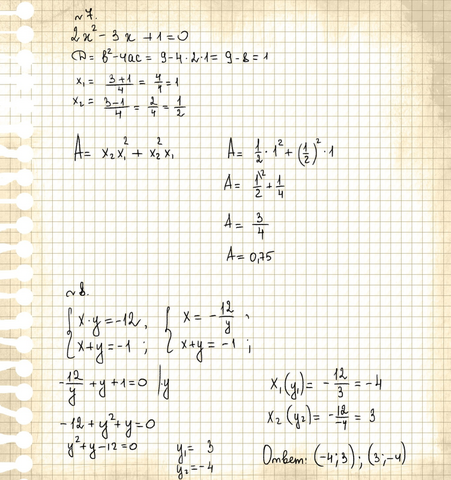 №7.
2x² - 3x + 1 = 0
D = b² - 4ac = 9 - 4 · 2 · 1 = 9 - 8 = 1
x₁ = (3+1)/4 = 4/4 = 1
x₂ = (3-1)/4 = 2/4 = 1/2
A = x₂x₁² + x₂²x₁
A = 1/2 · 1² + (1/2)² · 1
A = 1\²/2 + 1/4
A = 3/4
A = 0,75
№8.
{ x·y = -12, { x = -12/y ;
{ x+y = -1 ; { x+y = -1 ;
-12/y + y + 1 = 0 | y
-12 + y² + y = 0
y² + y - 12 = 0
y₁ = 3
y₂ = -4
x₁(y₁) = -12/3 = -4
x₂(y₂) = -12/-4 = 3
Ответ: (-4; 3) ; (3; -4)